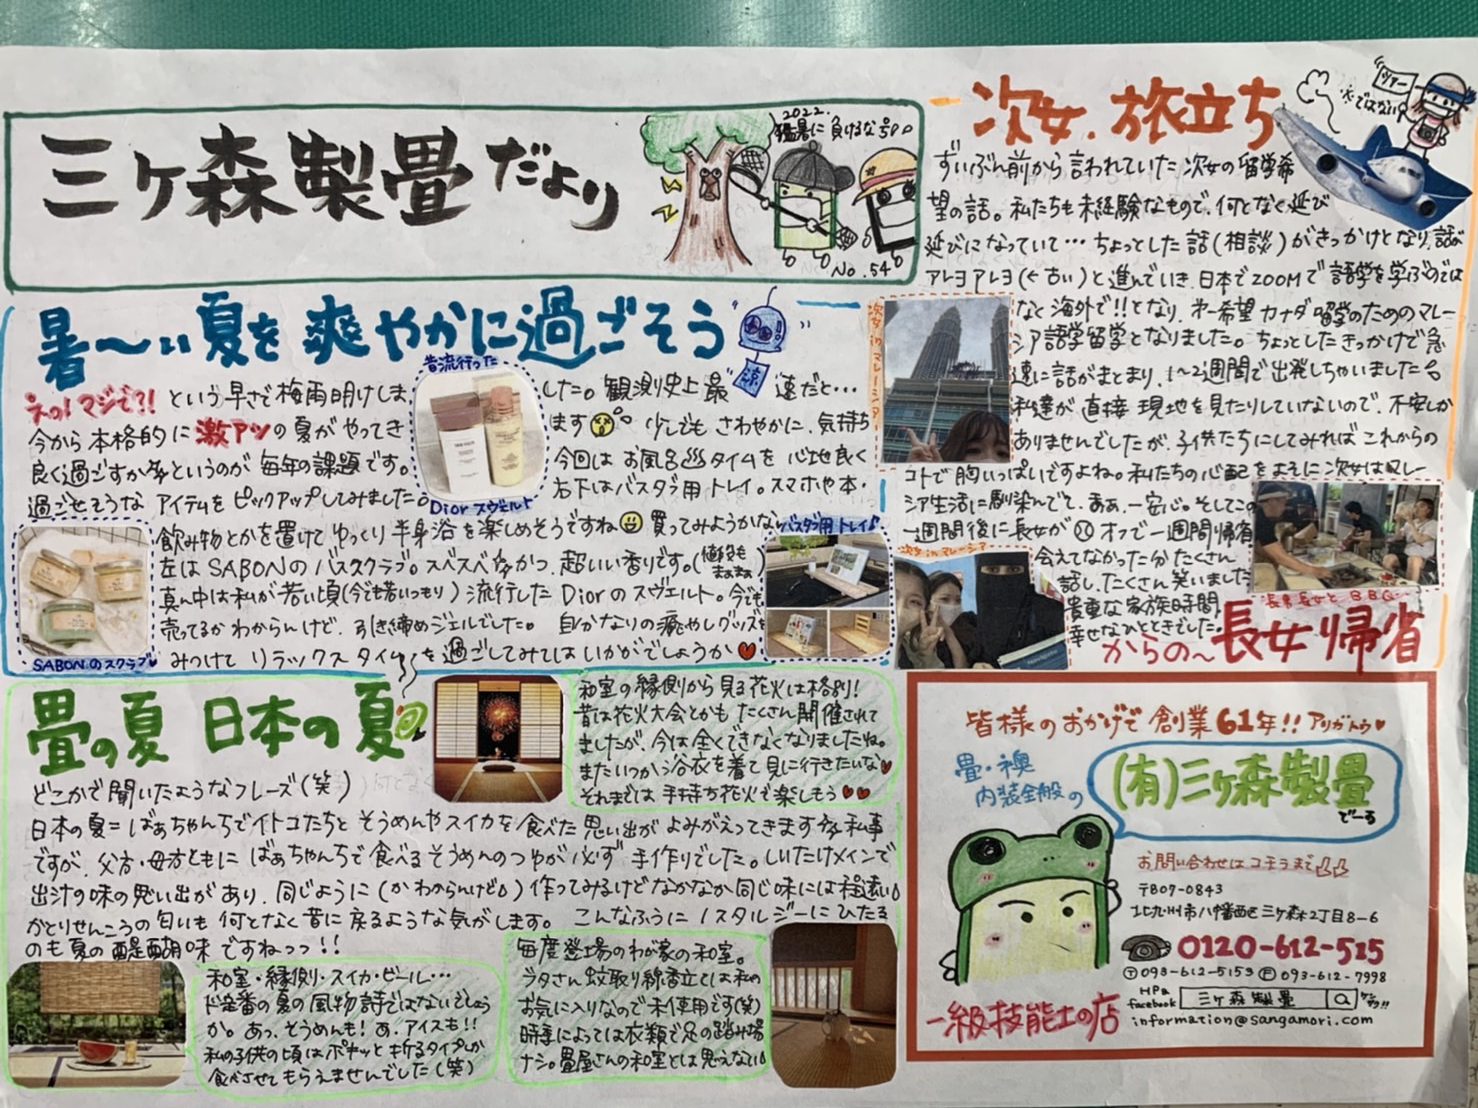 三ヶ森製畳だより
2022.
猛暑に負けるな号。。
No.54
暑〜い夏を爽やかに過ごそう
涼
えっ!マジで?!という早さで梅雨明けしま
した。観測史上最速だと…
今から本格的に激アツの夏がやってき
ます 少しでもさわやかに、気持ち
良く過ごすか多というのが毎年の課題です。
今回はお風呂タイムを心地良く
過ごせそうなアイテムをピックアップしてみました。
右下はバスタブ用トレイ。スマホや本・
飲み物とかを置けてゆっくり半身浴を楽しめそうですね 買ってみようかな
左はSABONのバスクラブ。スベスベ多かつ、超いい香りです。(値段もまぁまぁ)
真ん中は私が若い頃(今でも若いつもり)流行したDiorのスヴェルト。今でも
売ってるかわからんけど、引き締めジェルでした。 自分なりの癒やしグッズを
みつけてリラックスタイムを過ごしてみてはいかがでしょうか
昔流行った
Dior スヴェルト
SABONのスクラブ
バスタブ用トレイ
次女、旅立ち
ツアー
ではない
ずいぶん前から言われていた次女の留学希
望の話。私たちも未経験なもので、何となく延び
延びになっていて…ちょっとした話(相談)がきっかけとなり、話が
アレヨアレヨ(古い)と進んでいき、日本でZOOMで語学を学ぶのでは
なく海外で!!となり、第一希望カナダ留学のためのマレー
シア語学留学となりました。ちょっとしたきっかけで急
速に話がまとまり、1〜2週間で出発しちゃいました。
私達が直接現地を見たりしていないので、不安しか
ありませんでしたが、子供たちにしてみればこれからの
コトで胸いっぱいですよね。私たちの心配をよそに次女はマレー
シア生活に馴染んでて、まぁ、一安心。そしてこの
一週間後に長女がオフで一週間帰省
会えてなかった分たくさん
話し、たくさん笑いました
貴重な家族時間
幸せなひとときでした。
次女inマレーシア
次女inマレーシア
長男長女とBBQ
からの〜長女帰省
畳の夏 日本の夏
どこかで聞いたようなフレーズ(笑)
日本の夏=ばぁちゃんちでイトコたちとそうめんやスイカを食べた思い出がよみがえってきます 私事
ですが、父方・母方ともにばぁちゃんちで食べるそうめんのつゆが必ず手作りでした。しいたけメインで
出汁の味の思い出があり、同じように(かわからんけど)作ってみるけどなかなか同じ味には程遠い
かとりせんこうの匂いも何となく昔に戻るような気がします。 こんなふうにノスタルジーにひたる
のも夏の醍醐味ですねっっ!!
和室の縁側から見る花火は格別!
昔は花火大会とかもたくさん開催されて
ましたが、今は全くできなくなりましたね。
またいつかう浴衣を着て見に行きたいな
それまでは手持ち花火で楽しもう
和室・縁側・スイカ・ビール…
ド定番の夏の風物詩ではないでしょう
か。あっ、そうめんも!あ、アイスも!!
私の子供の頃はポキッと折るタイプしか
食べさせてもらえませんでした(笑)
毎度登場のわが家の和室。
ラタさん蚊取り線香立ては私の
お気に入りなので未使用です(笑)
時季によっては衣類で足の踏み場
ナシ。畳屋さんの和室とは思えない
皆様のおかげで創業61年!!アリガトウ
畳・襖
内装全般の
(有)三ヶ森製畳
でーす
お問い合わせはコチラまで
〒807-0843
北九州市八幡西区三ヶ森2丁目8-6
0120-612-515
Ⓣ093-612-5153 Ⓕ093-612-7998
HP&
facebook
三ヶ森製畳
information@sangamori.com
一級技能士の店